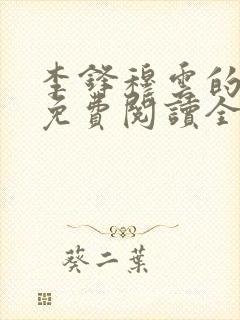 李鋒穆雲的
免費閱讀全
葵二葉